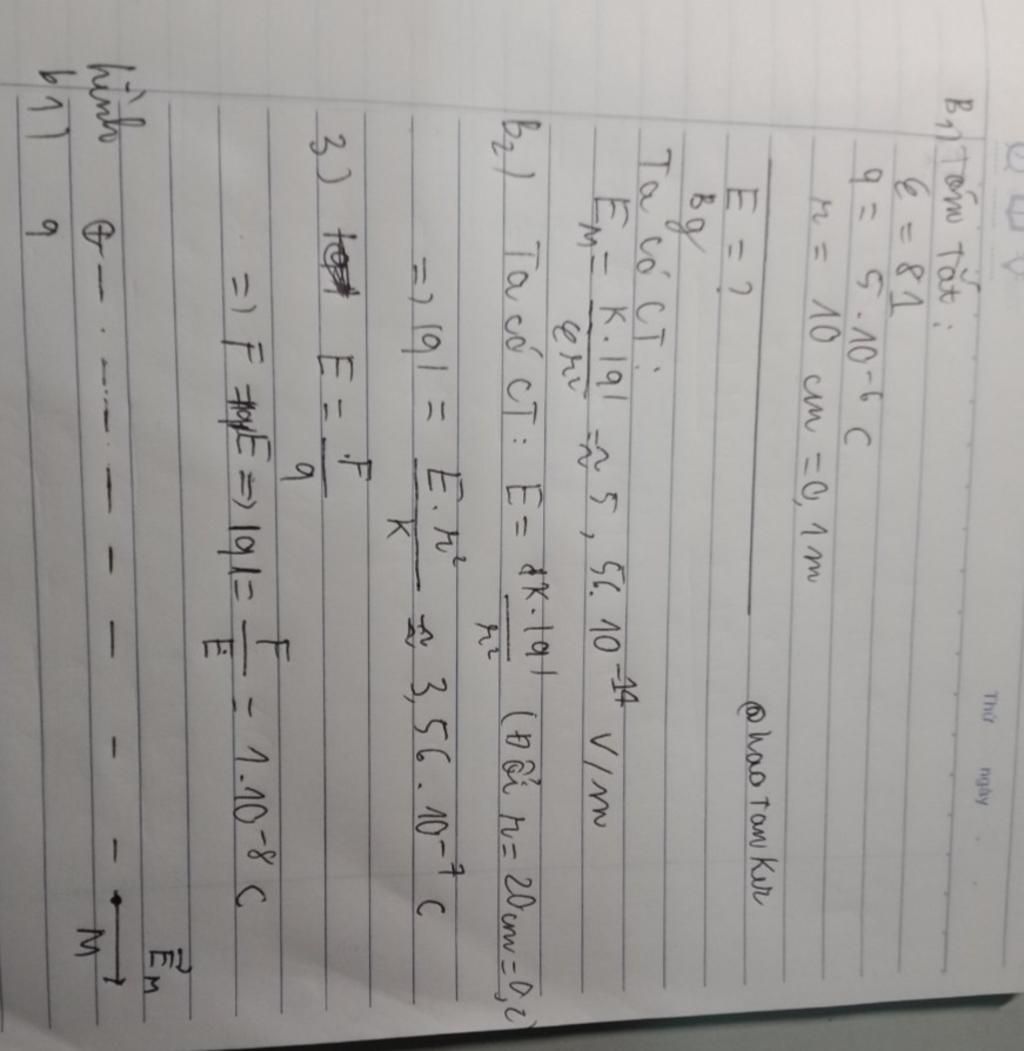 Thứ ngày
B1) Tóm Tắt:
ε = 81
q = 5.10⁻⁶ C
r = 10 cm = 0,1 m
E = ?
@haoTanKur
Bg
Ta có CT:
E_M = K.|q| / εr² ≈ 5,56.10⁻¹⁴ V/m
B2) Ta có CT: E = K.|q| / r² (Đổi r = 20cm = 0,2)
=> |q| = E.r² / K ≈ 3,56.10⁻⁷ C
3) E = F / q
=> F = |q|E => |q| = F / E = 1.10⁻⁸ C
E⃗_M
hình ⊕ M
b1) q